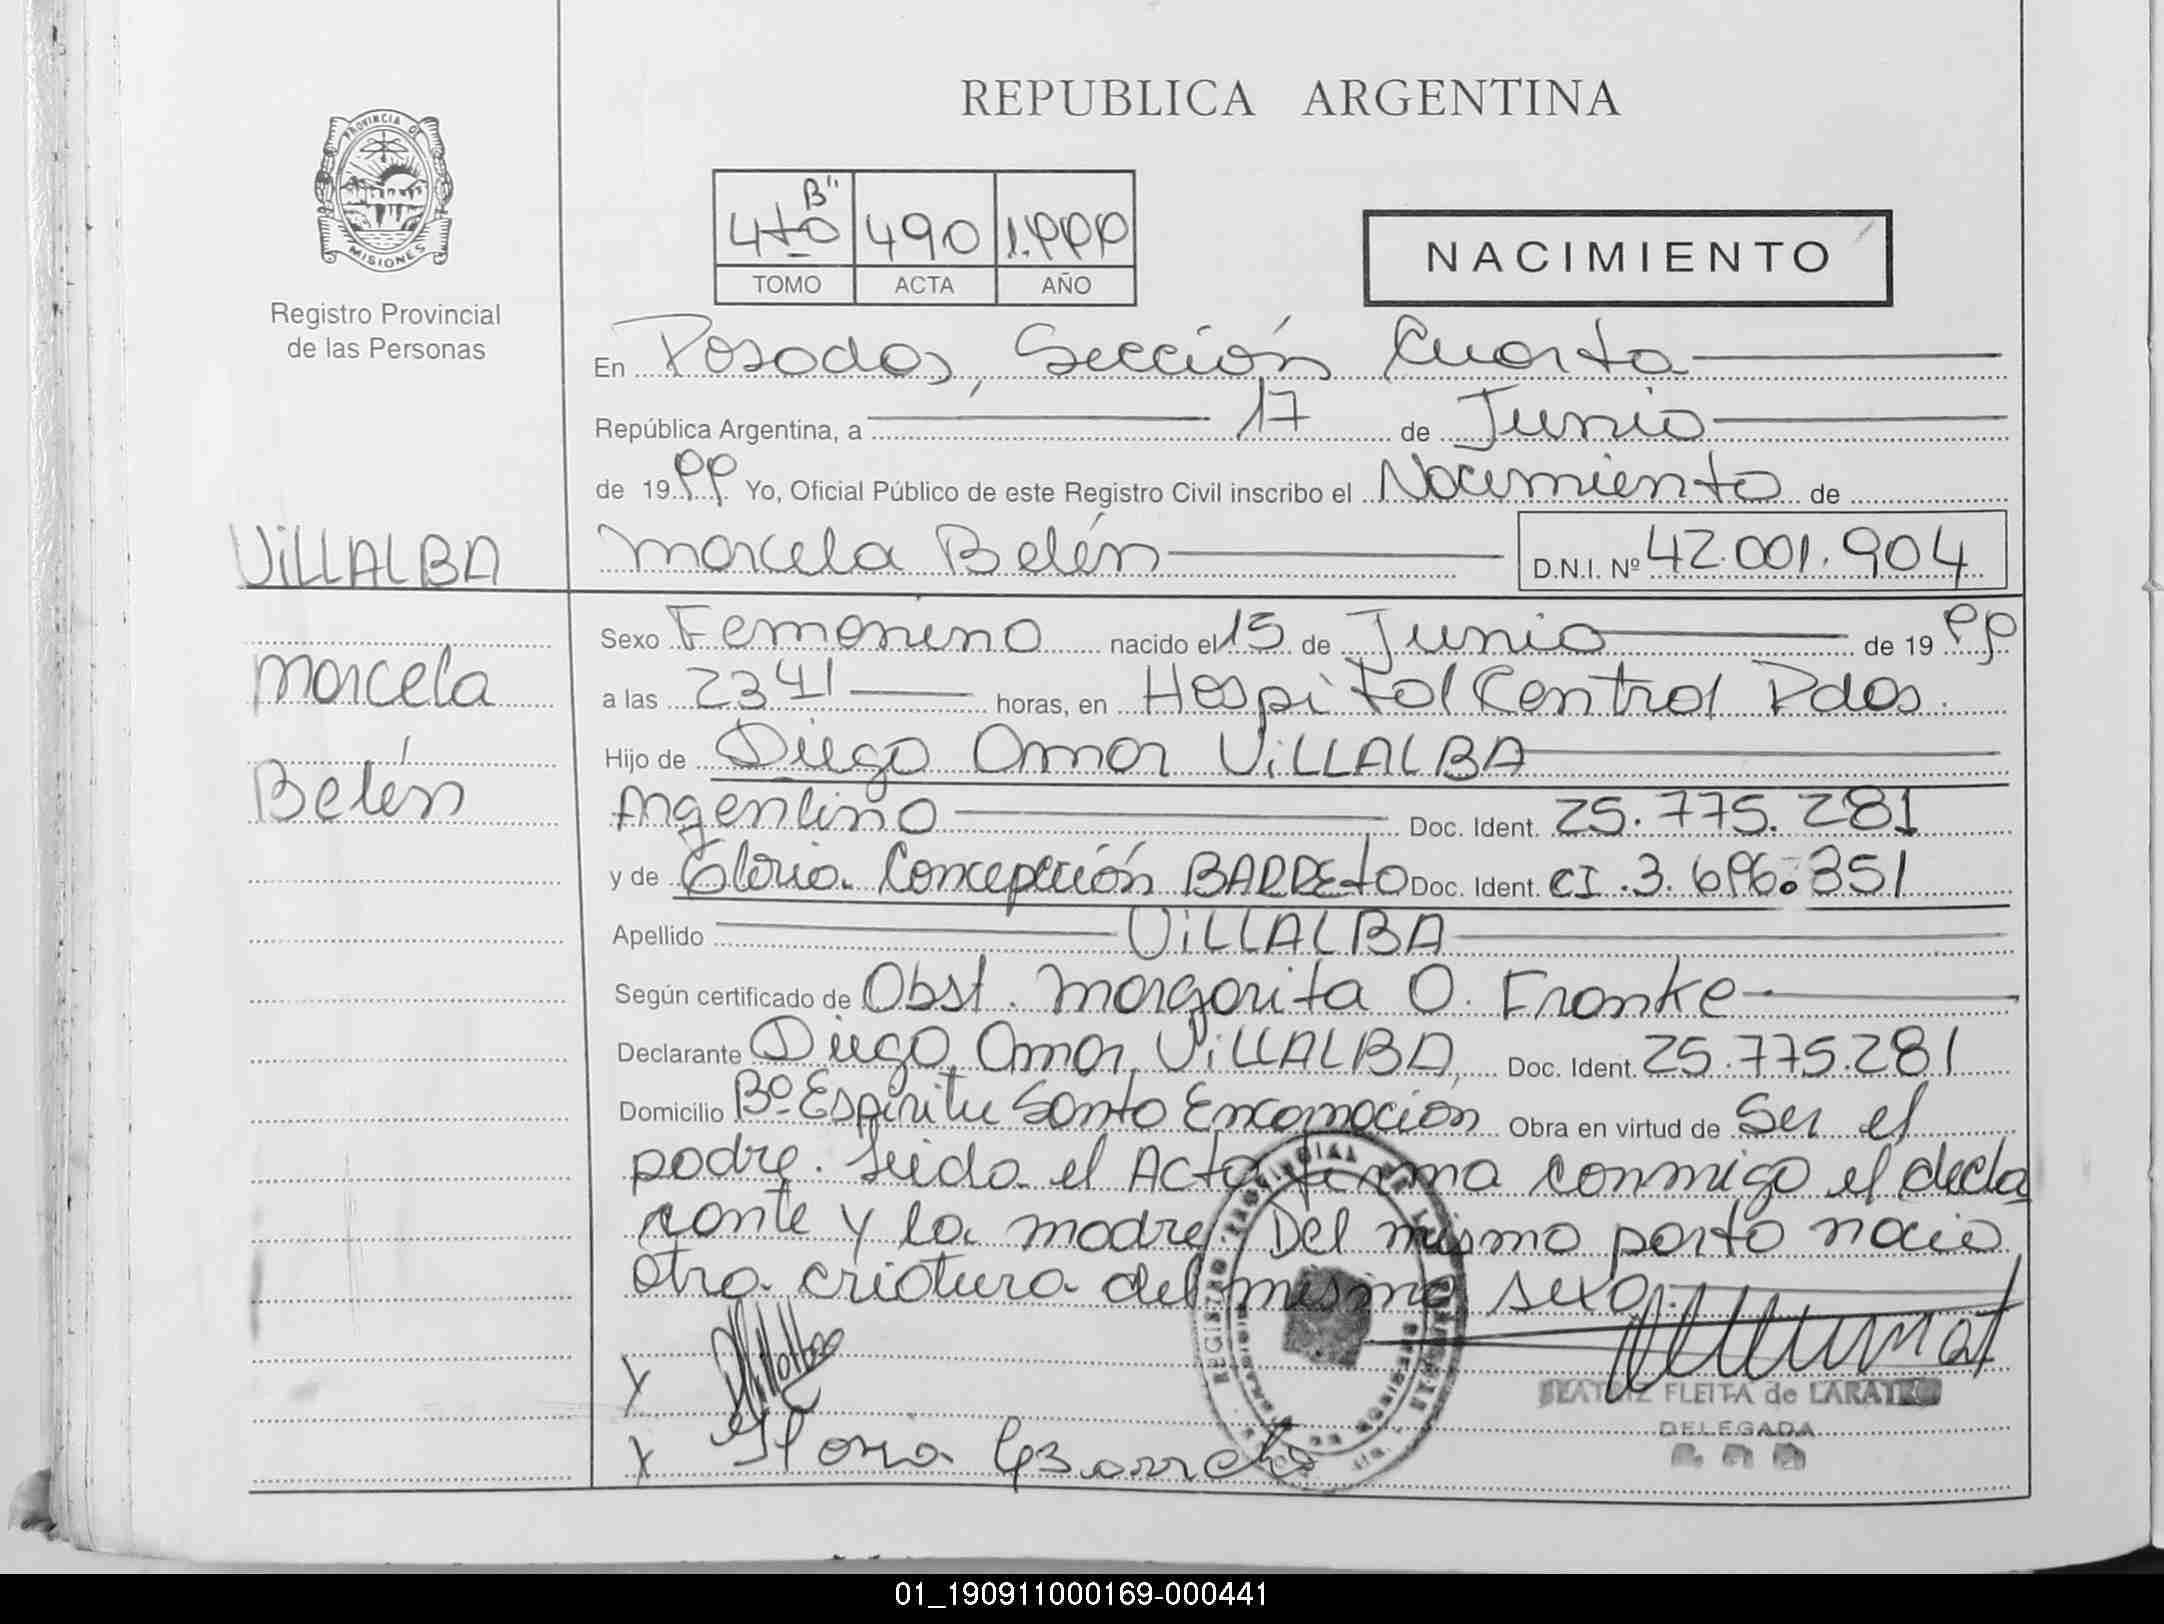 REPUBLICA ARGENTINA
PROVINCIA DE
MISIONES
Registro Provincial
de las Personas
4to B" 490 1.999
TOMO ACTA AÑO
NACIMIENTO
En Posadas, Sección Cuarta
República Argentina, a 17 de Junio
de 1999 Yo, Oficial Público de este Registro Civil inscribo el Nacimiento de
VILLALBA
Marcela Belén
Marcela Belén D.N.I. Nº 42.001.904
Sexo Femenino nacido el 15 de Junio de 1999
a las 2341 horas, en Hospital Central Pdas.
Hijo de Diego Omar VILLALBA
Argentino Doc. Ident. 25.775.281
y de Gloria Concepción BARRETO Doc. Ident. CI.3.696.351
Apellido VILLALBA
Según certificado de Obst. Margarita O. Franke
Declarante Diego Omar VILLALBA, Doc. Ident. 25.775.281
Domicilio Bº Espiritu Santo Encarnacion Obra en virtud de Ser el
padre. Leida el Acta firma conmigo el decla
rante y la madre. Del mismo parto nacio
otra criatura del mismo sexo.
BEATRIZ FLEITA de
DELEGADA
Gloria C Barreto
01_190911000169-000441